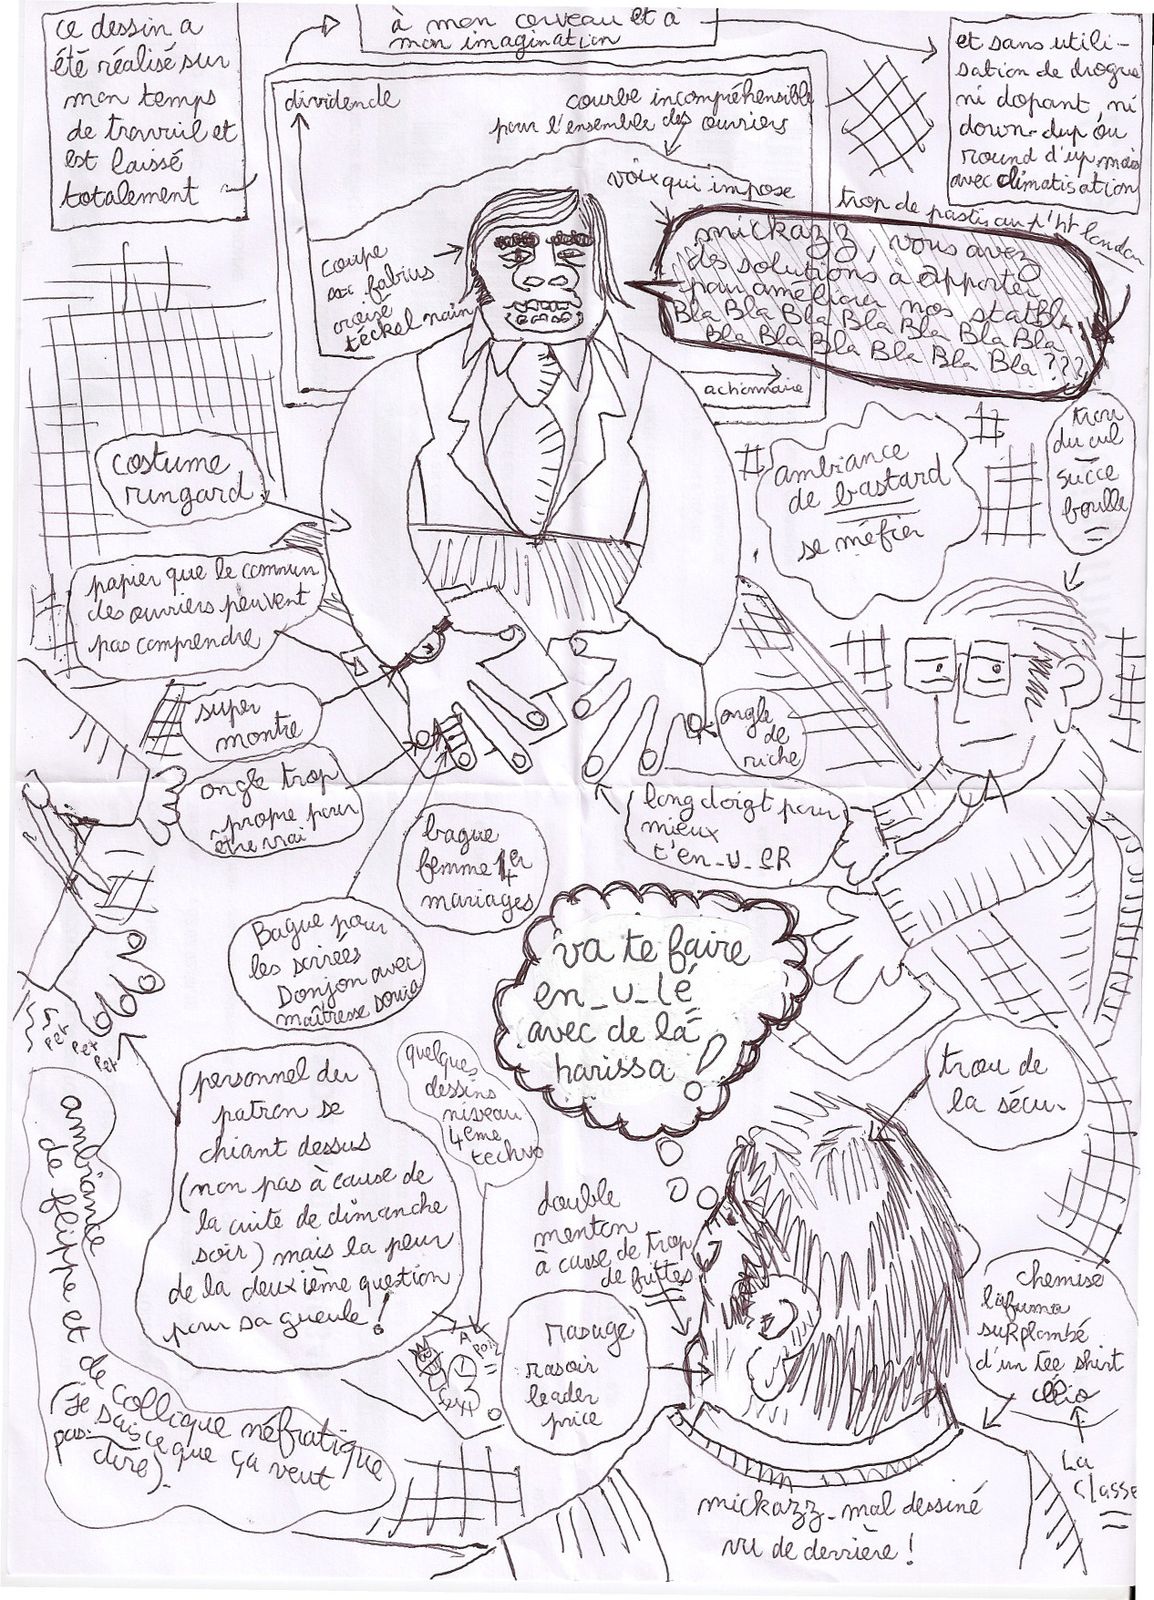 ce dessin a
été réalisé sur
mon temps
de travail et
est laissé
totalement
à mon cerveau et à
mon imagination
et sans utili-
sation de drogue
ni dopant, ni
down-dup ou
round d'up mais
avec climatisation
dividende
courbe incompréhensible
pour l'ensemble des ouvriers
voix qui impose
trop de pastis au p'tit landon
mickazz, vous avez
des solutions à apporter
pour améliorer nos
Bla Bla Bla Bla Bla Bla Bla
Bla Bla Bla Bla Bla Bla Bla ???
coupe
fabius
croisé
teckel nain
actionnaire
costume
ringard
ambiance
de bastard
se méfier
trou
du cul
succe
boulle
papier que le commun
des ouvriers peuvent
pas comprendre
super
montre
ongle
de
riche
ongle trop
propre pour
être vrai
long doigt pour
mieux
t'en_u_eR
bague
femme 1er
mariages
Bague pour
les soirées
Donjon avec
maîtresse Sonia
va te faire
en_u_lé
avec de la
harissa !
trou de
la sécu.
Pet
Pet
Pet
personnel du
patron se
chiant dessus
(non pas à cause de
la cuite de dimanche
soir) mais la peur
de la deuxième question
pour sa gueule !
quelques
dessins
niveau
4eme
techno
double
menton
à cause de trop
de frittes
Rasage
rasoir
leader
price
chemise
lafuma
surplombé
d'un tee shirt
La
classe
ambiance
de flippe et de collique néfratique
(Je sais
pas ce que ça veut
dire).
mickazz mal dessiné
vu de derrière !